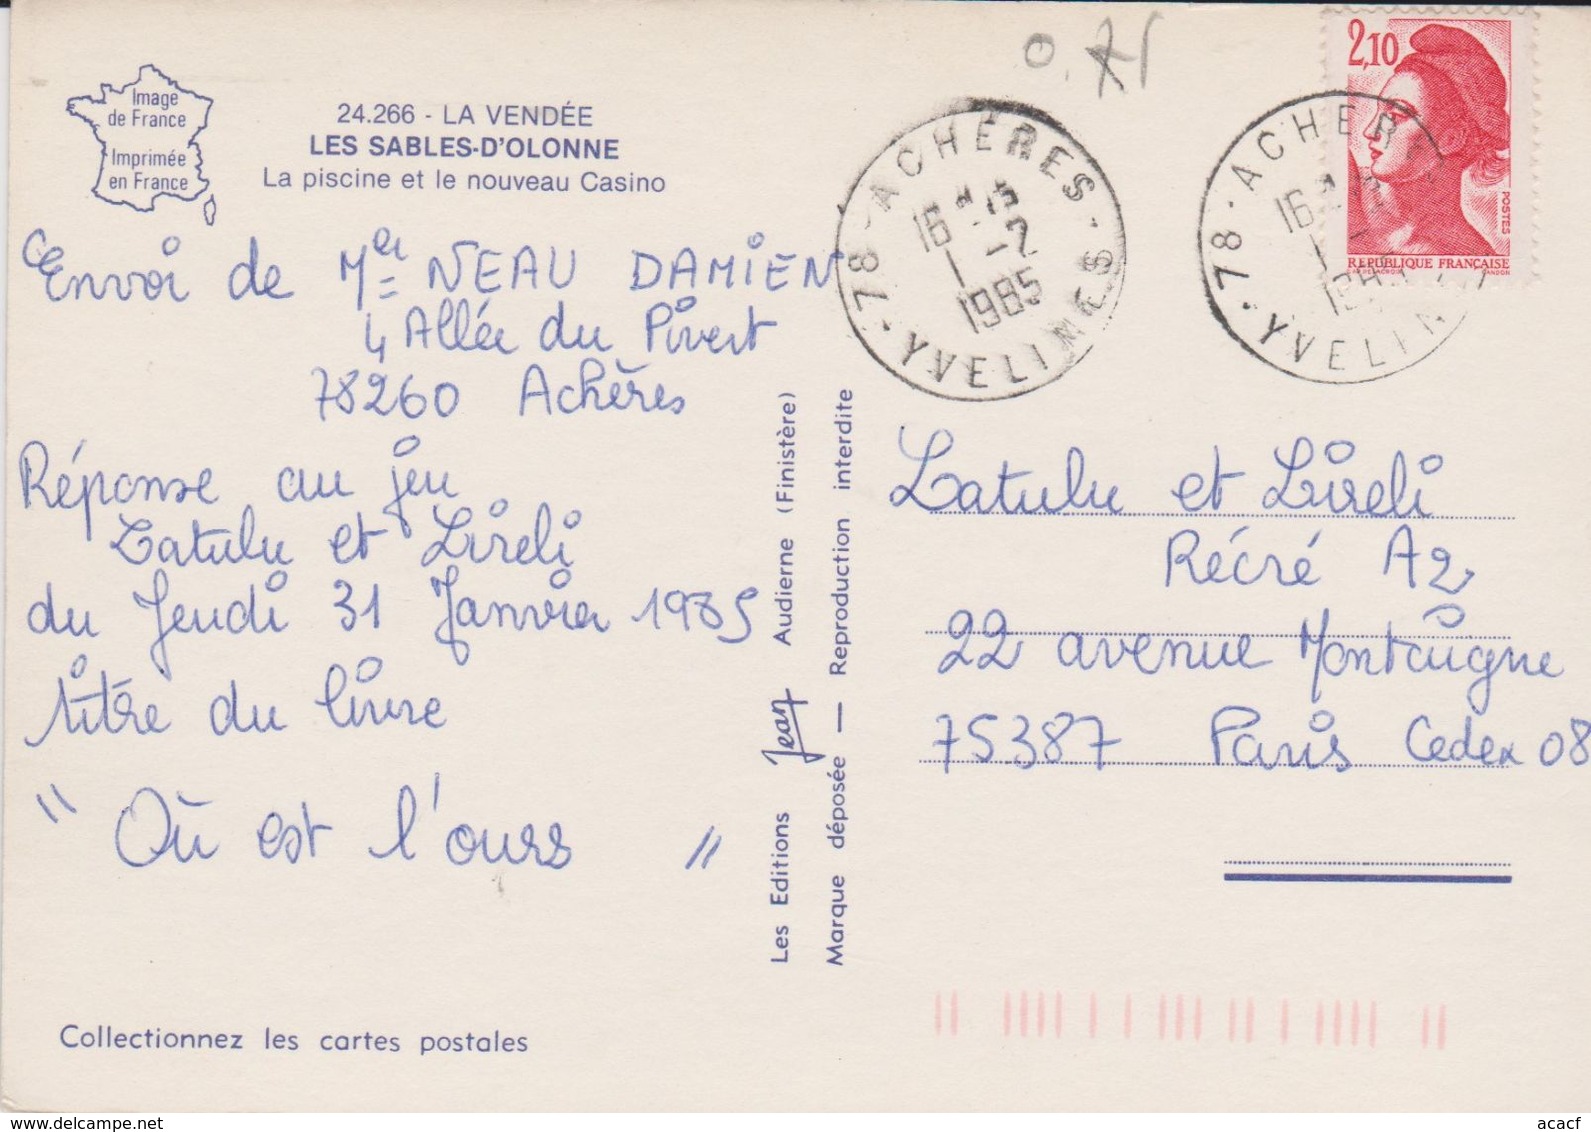 Image
de France
Imprimée
en France
24.266 - LA VENDÉE
LES SABLES-D'OLONNE
La piscine et le nouveau Casino
Envoi de Mer NEAU DAMIEN
4 Allée du Pivert
78260 Achères
Réponse au jeu
Latulu et Lireli
du Jeudi 31 Janvier 1985
titre du livre
" Où est l'ours "
Collectionnez les cartes postales
Les Editions Jean Audierne (Finistère)
Marque déposée — Reproduction interdite
78 - ACHÈRES - YVELINES
16 H 15
1 - 2
1985
78 - ACHER
YVELIN
16
2,10
POSTES
RÉPUBLIQUE FRANÇAISE
Latulu et Lireli
Récré A2
22 avenue Montaigne
75387 Paris Cedex 08
acacf